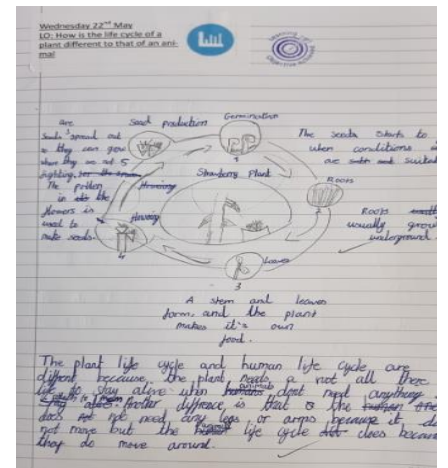 Wednesday 22nd May
LO: How is the life cycle of a
plant different to that of an ani-
mal
Learning
Objective Achieved
Seed production
Germination
are
Seeds spread out
so they can grow
where they are not
fighting.
The pollen
in the
flowers is
used to
make seeds.
Flowering
Flowering
Strawberry Plant
The seeds starts to
when conditions
are suitab
Roots
Roots
usually grow
underground
1
3
4
5
Leaves
A stem and leaves
form, and the plant
makes it's own
food.
The plant life cycle and human life cycle are
diffrent because, the plant needs a not all there
life to stay alive when animals dont need anything
Another diffrence is that the
does not need any legs or arms because it
not move but the life cycle does becau
they do move around.